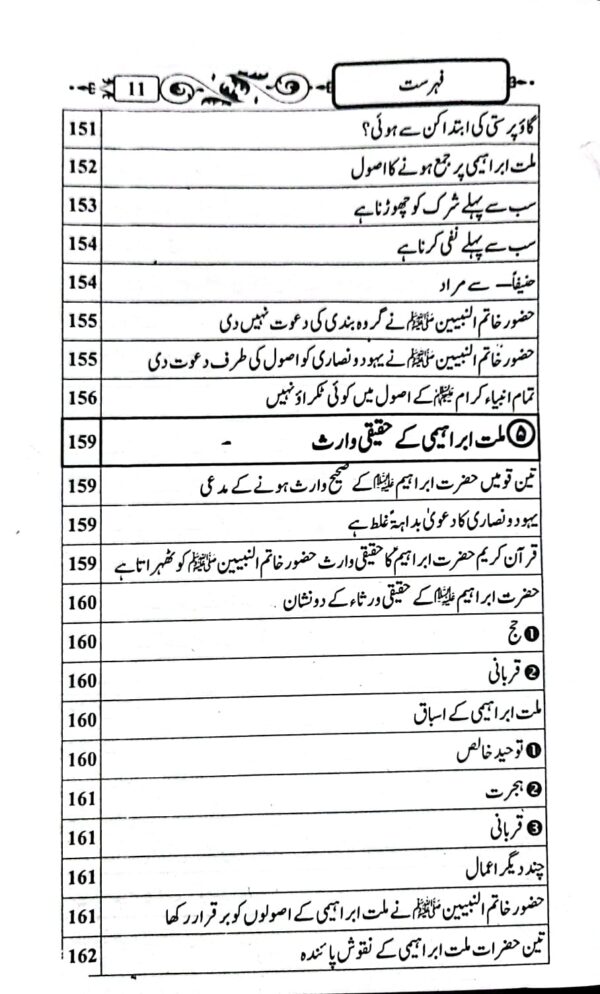 فہرست 11
گاؤ پرستی کی ابتدا کن سے ہوئی؟ 151
ملت ابراہیمی پر جمع ہونے کا اصول 152
سب سے پہلے شرک کو چھوڑنا ہے 153
سب سے پہلے نفی کرنا ہے 154
حنیفاً — سے مراد 154
حضور خاتم النبیین ﷺ نے گروہ بندی کی دعوت نہیں دی 155
حضور خاتم النبیین ﷺ نے یہود و نصاری کو اصول کی طرف دعوت دی 155
تمام انبیاء کرام علیہم السلام کے اصول میں کوئی ٹکراؤ نہیں 156
۵ ملت ابراہیمی کے حقیقی وارث 159
تین قومیں حضرت ابراہیم علیہ السلام کے صحیح وارث ہونے کے مدعی 159
یہود و نصاری کا دعویٰ بداہۃً غلط ہے 159
قرآن کریم حضرت ابراہیمؑ کا حقیقی وارث حضور خاتم النبیین ﷺ کو ٹھہراتا ہے 159
حضرت ابراہیم علیہ السلام کے حقیقی ورثاء کے دو نشان 160
❶ حج 160
❷ قربانی 160
ملت ابراہیمی کے اسباق 160
❶ توحید خالص 160
❷ ہجرت 161
❸ قربانی 161
چند دیگر اعمال 161
حضور خاتم النبیین ﷺ نے ملت ابراہیمی کے اصولوں کو برقرار رکھا 161
تین حضرات ملت ابراہیمی کے نقوش پائندہ 162